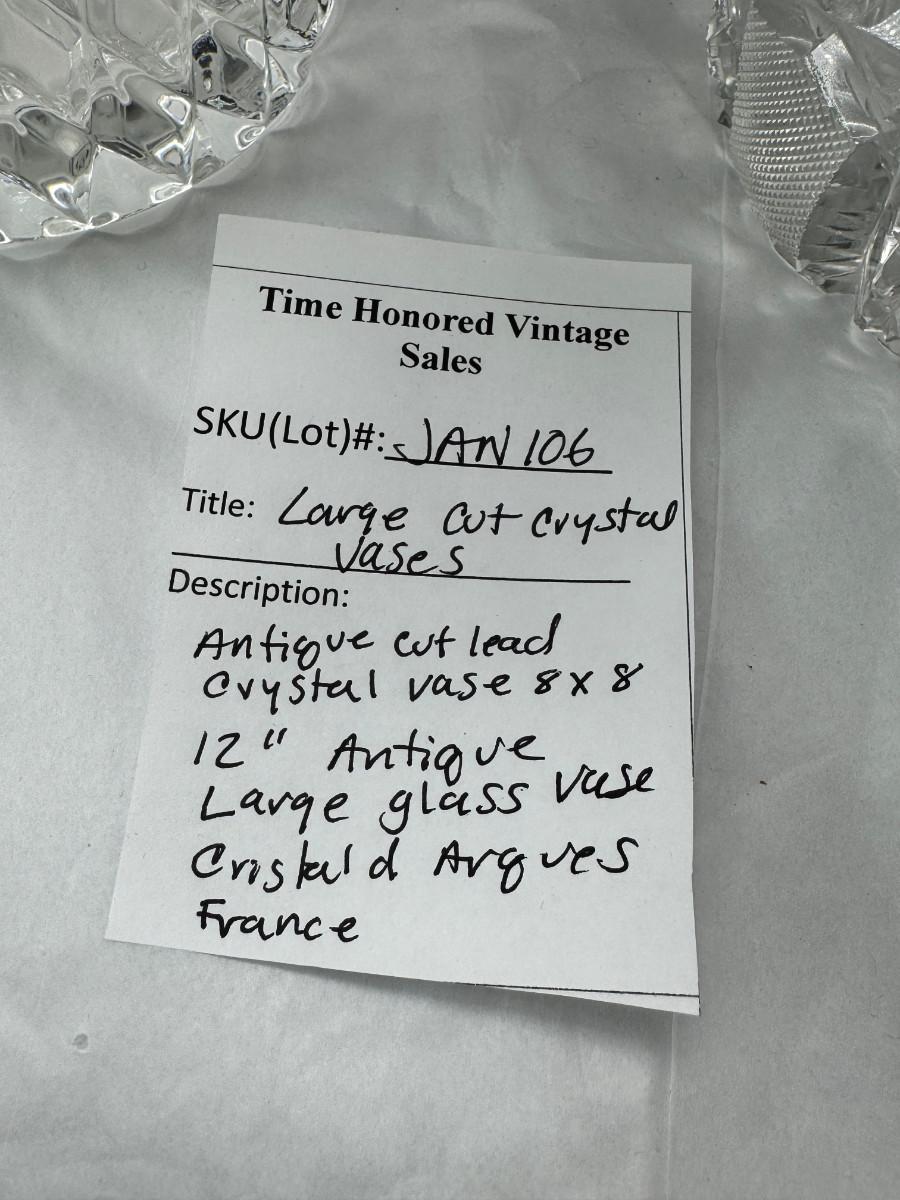 Time Honored Vintage
Sales
SKU(Lot)#: JAN 106
Title: Large cut crystal
vases
Description:
Antique cut lead
Crystal vase 8 x 8
12" Antique
Large glass vase
Cristal d Arques
France